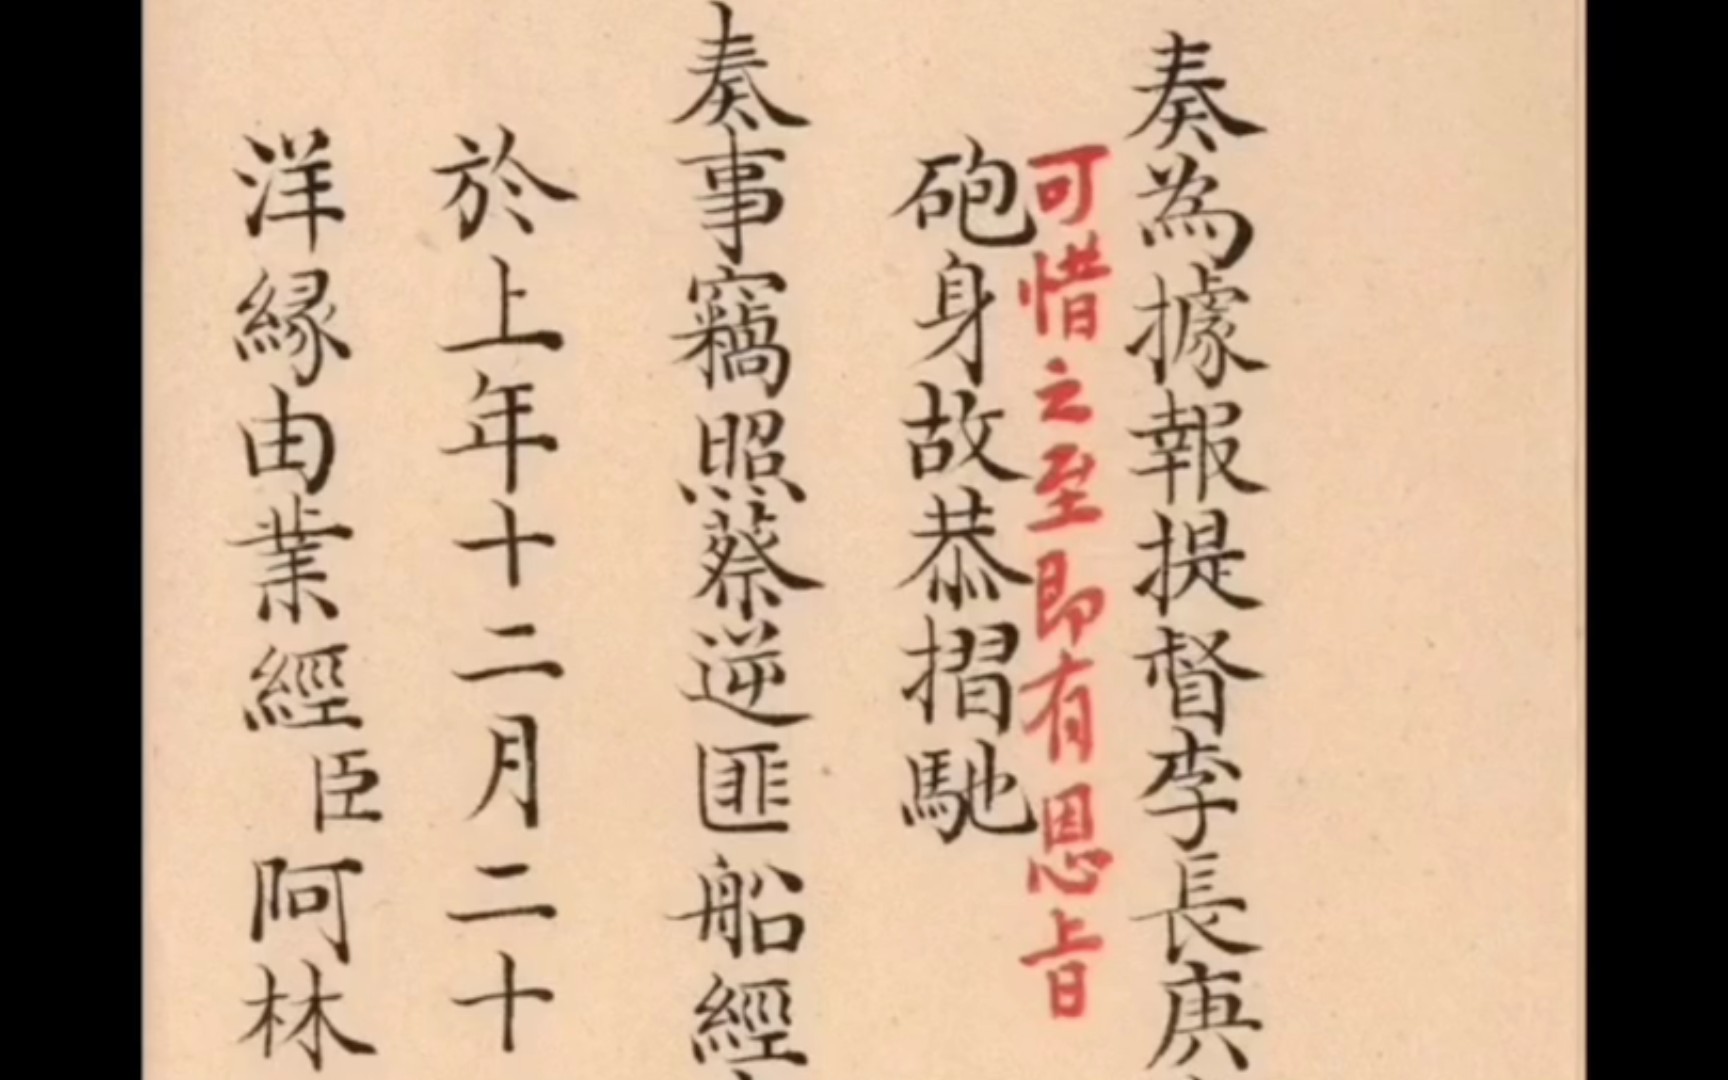 奏為據報提督李長庚
可惜之至即有恩旨
砲身故恭摺馳
奏事竊照蔡逆匪船經
於上年十二月二十
洋緣由業經臣阿林